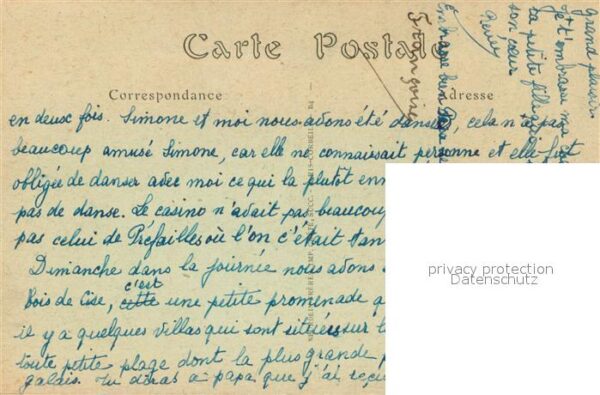 Carte Postale
Correspondance
Adresse
en deux fois. Simone et moi nous avons été danser, cela n'a pas
beaucoup amusé Simone, car elle ne connaissait personne et elle fut
obligée de danser avec moi ce qui la plutot
pas de danse. Le casino n'avait pas beaucoup
pas celui de Préfailles où l'on c'était
Dimanche dans la journée nous avons
bois de Cise, cette c'est une petite promenade
il y a quelques villas qui sont situées sur
toute petite plage dont la plus grande
galais. Tu diras a papa que j'ai reçu
grand plaisir.
je t'embrasse
ta petite fille
son cœur
Françoise
privacy protection
Datenschutz